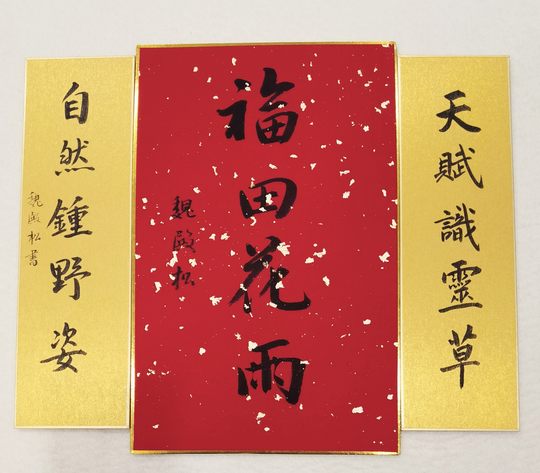 天賦識靈草
福田花雨
魏殿松
自然鍾野姿
魏殿松書